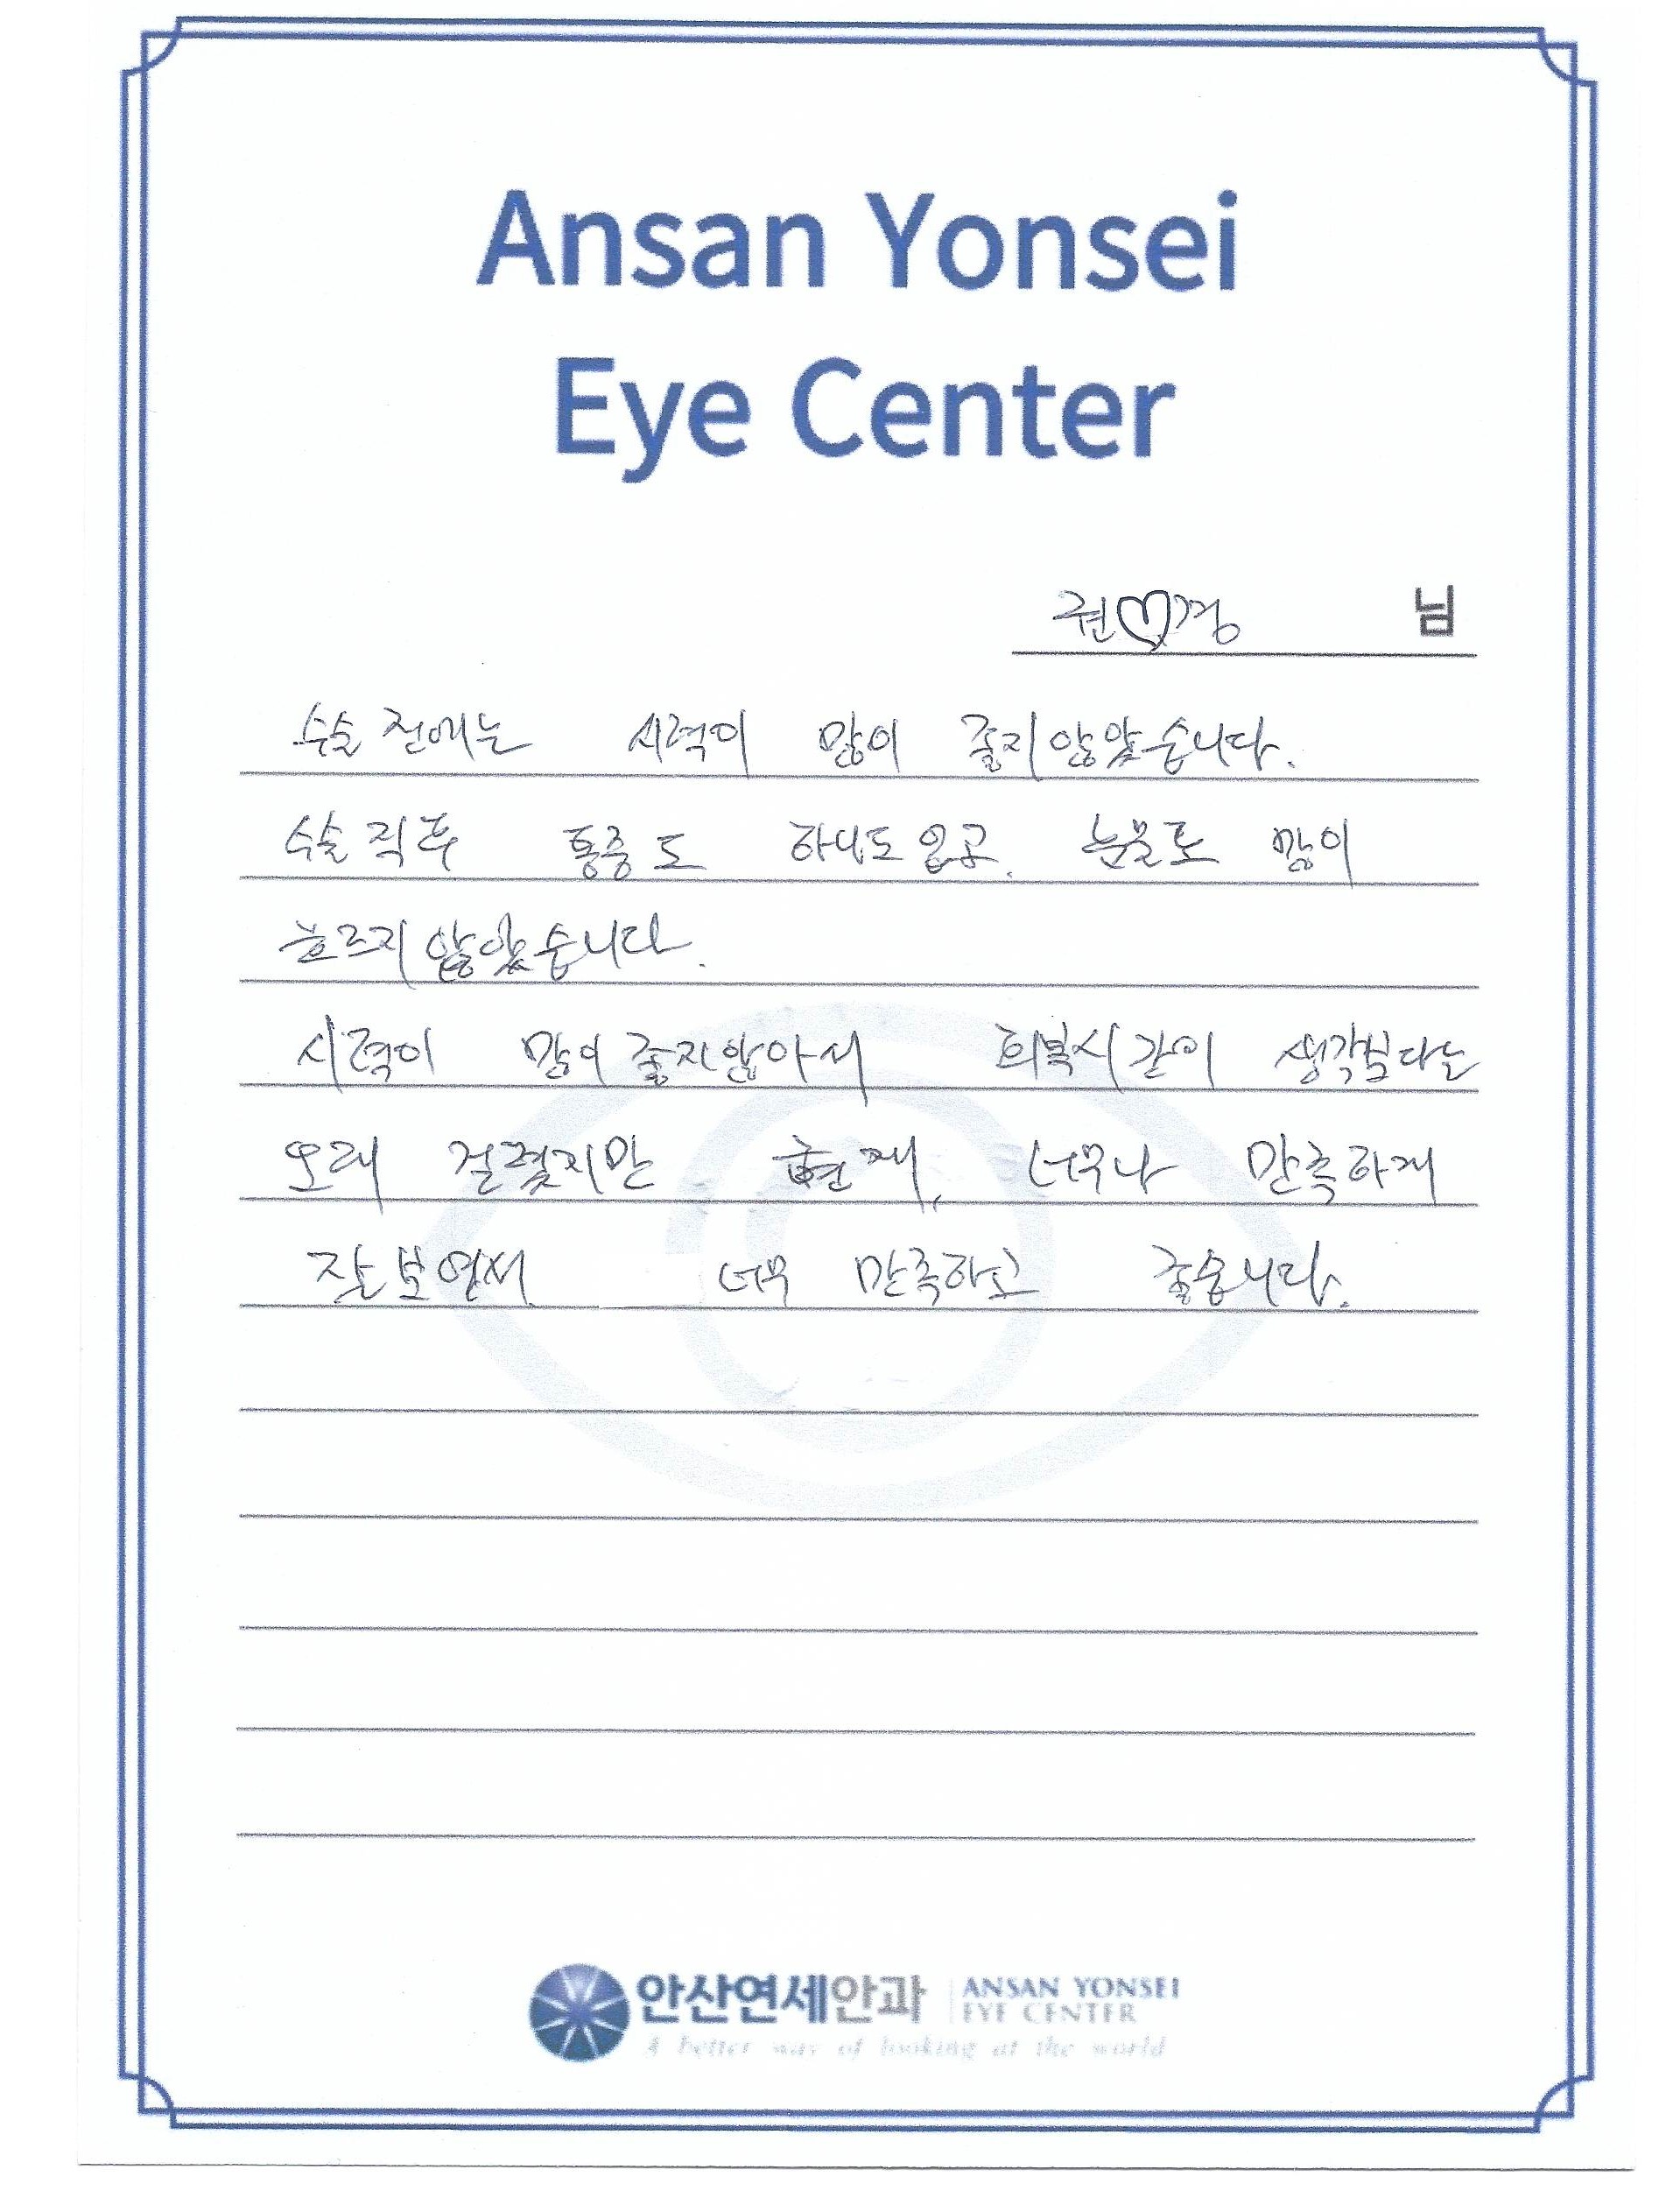 Ansan Yonsei
Eye Center
권♡경 님
수술 전에는 시력이 많이 좋지 않았습니다.
수술 직후 통증도 하나도 없고. 눈물도 많이
흐르지 않았습니다.
시력이 많이 좋지않아서 회복시간이 생각보다는
오래 걸렸지만 현재, 너무나 만족하게
잘 보여서 너무 만족하고 좋습니다.
안산연세안과 ANSAN YONSEI
EYE CENTER
A better way of looking at the world